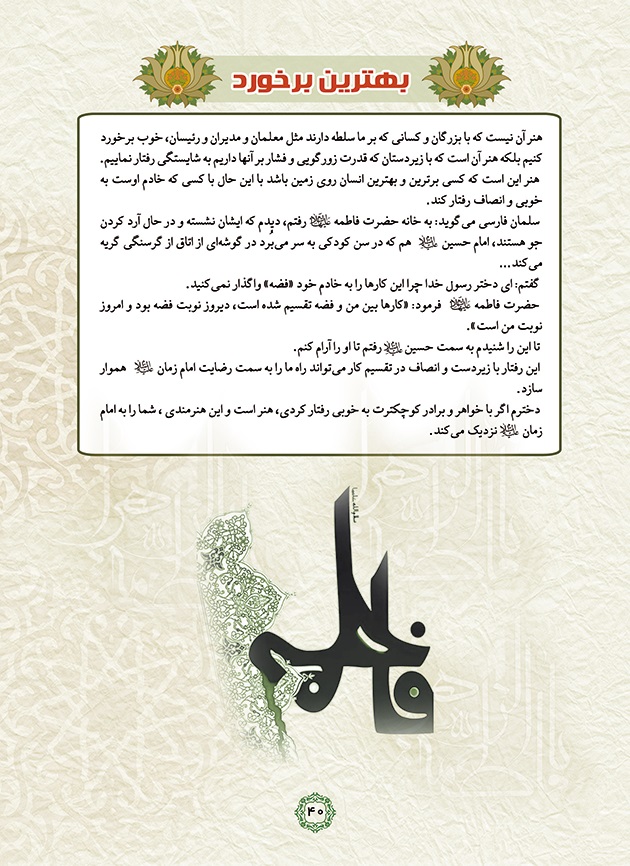 بهترین برخورد
هنر آن نیست که با بزرگان و کسانی که بر ما سلطه دارند مثل معلمان و مدیران و رئیسان، خوب برخورد
کنیم بلکه هنر آن است که با زیردستان که قدرت زورگویی و فشار بر آنها داریم به شایستگی رفتار نماییم.
هنر این است که کسی برترین و بهترین انسان روی زمین باشد با این حال با کسی که خادم اوست به
خوبی و انصاف رفتار کند.
سلمان فارسی می‌گوید: به خانه حضرت فاطمه رفتم، دیدم که ایشان نشسته و در حال آرد کردن
جو هستند، امام حسین هم که در سن کودکی به سر می‌بُرد در گوشه‌ای از اتاق از گرسنگی گریه
می‌کند...
گفتم: ای دختر رسول خدا چرا این کارها را به خادم خود «فضه» واگذار نمی‌کنید.
حضرت فاطمه فرمود: «کارها بین من و فضه تقسیم شده است، دیروز نوبت فضه بود و امروز
نوبت من است».
تا این را شنیدم به سمت حسین رفتم تا او را آرام کنم.
این رفتار با زیردست و انصاف در تقسیم کار می‌تواند راه ما را به سمت رضایت امام زمان هموار
سازد.
دخترم اگر با خواهر و برادر کوچکترت به خوبی رفتار کردی، هنر است و این هنرمندی ، شما را به امام
زمان نزدیک می‌کند.
فاطمه
۴۰